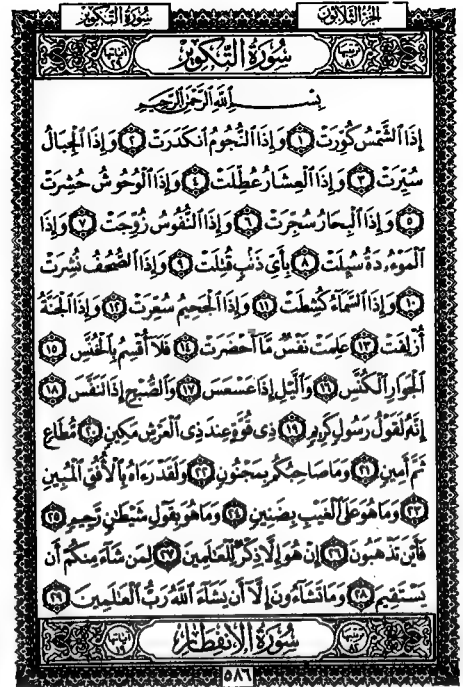 سُورَةُ التَّكْوِيرِ الجُزْءُ الثَّلَاثُونَ
سُورَةُ التَّكْوِيرِ
بِسْمِ اللَّهِ الرَّحْمَٰنِ الرَّحِيمِ
إِذَا ٱلشَّمْسُ كُوِّرَتْ ١ وَإِذَا ٱلنُّجُومُ ٱنكَدَرَتْ ٢ وَإِذَا ٱلْجِبَالُ
سُيِّرَتْ ٣ وَإِذَا ٱلْعِشَارُ عُطِّلَتْ ٤ وَإِذَا ٱلْوُحُوشُ حُشِرَتْ
٥ وَإِذَا ٱلْبِحَارُ سُجِّرَتْ ٦ وَإِذَا ٱلنُّفُوسُ زُوِّجَتْ ٧ وَإِذَا
ٱلْمَوْءُۥدَةُ سُئِلَتْ ٨ بِأَىِّ ذَنۢبٍ قُتِلَتْ ٩ وَإِذَا ٱلصُّحُفُ نُشِرَتْ
١٠ وَإِذَا ٱلسَّمَآءُ كُشِطَتْ ١١ وَإِذَا ٱلْجَحِيمُ سُعِّرَتْ ١٢ وَإِذَا ٱلْجَنَّةُ
أُزْلِفَتْ ١٣ عَلِمَتْ نَفْسٌ مَّآ أَحْضَرَتْ ١٤ فَلَآ أُقْسِمُ بِٱلْخُنَّسِ ١٥
ٱلْجَوَارِ ٱلْكُنَّسِ ١٦ وَٱلَّيْلِ إِذَا عَسْعَسَ ١٧ وَٱلصُّبْحِ إِذَا تَنَفَّسَ ١٨
إِنَّهُۥ لَقَوْلُ رَسُولٍ كَرِيمٍ ١٩ ذِى قُوَّةٍ عِندَ ذِى ٱلْعَرْشِ مَكِينٍ ٢٠ مُّطَاعٍ
ثَمَّ أَمِينٍ ٢١ وَمَا صَاحِبُكُم بِمَجْنُونٍ ٢٢ وَلَقَدْ رَءَاهُ بِٱلْأُفُقِ ٱلْمُبِينِ
٢٣ وَمَا هُوَ عَلَى ٱلْغَيْبِ بِضَنِينٍ ٢٤ وَمَا هُوَ بِقَوْلِ شَيْطَٰنٍ رَّجِيمٍ ٢٥
فَأَيْنَ تَذْهَبُونَ ٢٦ إِنْ هُوَ إِلَّا ذِكْرٌ لِّلْعَٰلَمِينَ ٢٧ لِمَن شَآءَ مِنكُمْ أَن
يَسْتَقِيمَ ٢٨ وَمَا تَشَآءُونَ إِلَّآ أَن يَشَآءَ ٱللَّهُ رَبُّ ٱلْعَٰلَمِينَ ٢٩
ترتيبها ٨٢ سُورَةُ الانفِطَارِ آياتها ١٩
٥٨٦